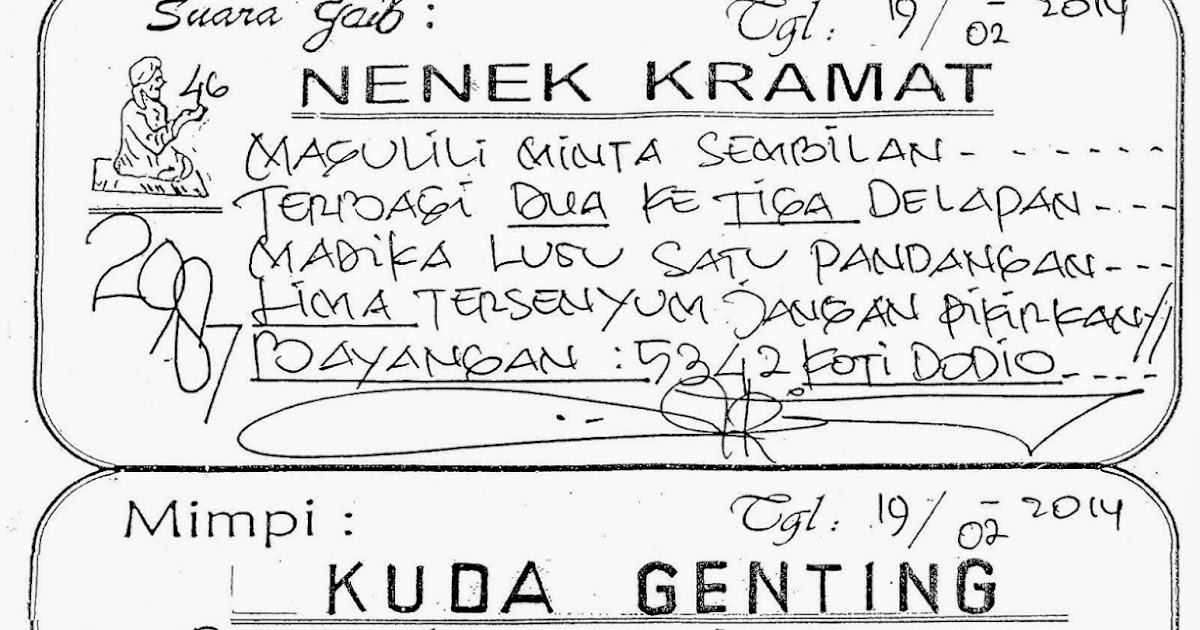 Suara Gaib : Tgl : 19/02-2014
46
NENEK KRAMAT
MAGULILI MINTA SEMBILAN - - - - - - -
TERBAGI DUA KE TIGA DELAPAN - - - -
MADIKA LUGU SATU PANDANGAN - - -
LIMA TERSENYUM JANGAN DIKIRKAN //
BAYANGAN : 5342 KOTI DODIO - - - -
2987
Mimpi : Tgl : 19/02-2014
KUDA GENTING